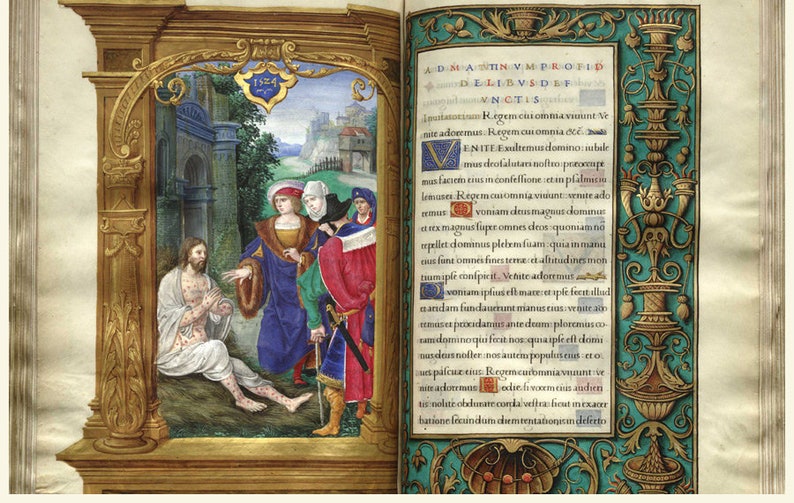 1524
AD MATINVM PRO FID
ELIBVS DEF
VNCTIS
Inuitatorium Regem cui omnia viuunt. Ve
nite adoremus. Regem cui omnia &c.
VENITE Exultemus domino: iubile
mus deo salutari nostro: præoccupe
mus faciem eius in confessione: et in psalmis iu
lemus ei: Regem cui omnia viuunt: venite ado
remus Quoniam deus magnus dominus
et rex magnus super omnes deos: quoniam no
repellet: dominus plebem suam: quia in manu
eius sunt omnes fines terræ: et altitudines mon
tium ipse conspicit. Venite adoremus
Quoniam ipsius est mare: et ipse fecit illud
et aridam fundauerunt manus eius: venite ado
remus et procidamus ante deum: ploremus co
ram domino qui fecit nos: quia ipse est domi
nus deus noster: nos autem populus eius: et o
ues pascuæ eius: Regem cui omnia viuunt: ve
nite adoremus Hodie si vocem eius audieri
tis: nolite obdurare corda vestra: sicut in exacer
batione secundum diem tentationis in deserto